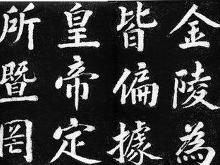 金陵為
皆偏據
皇帝定
所暨罔